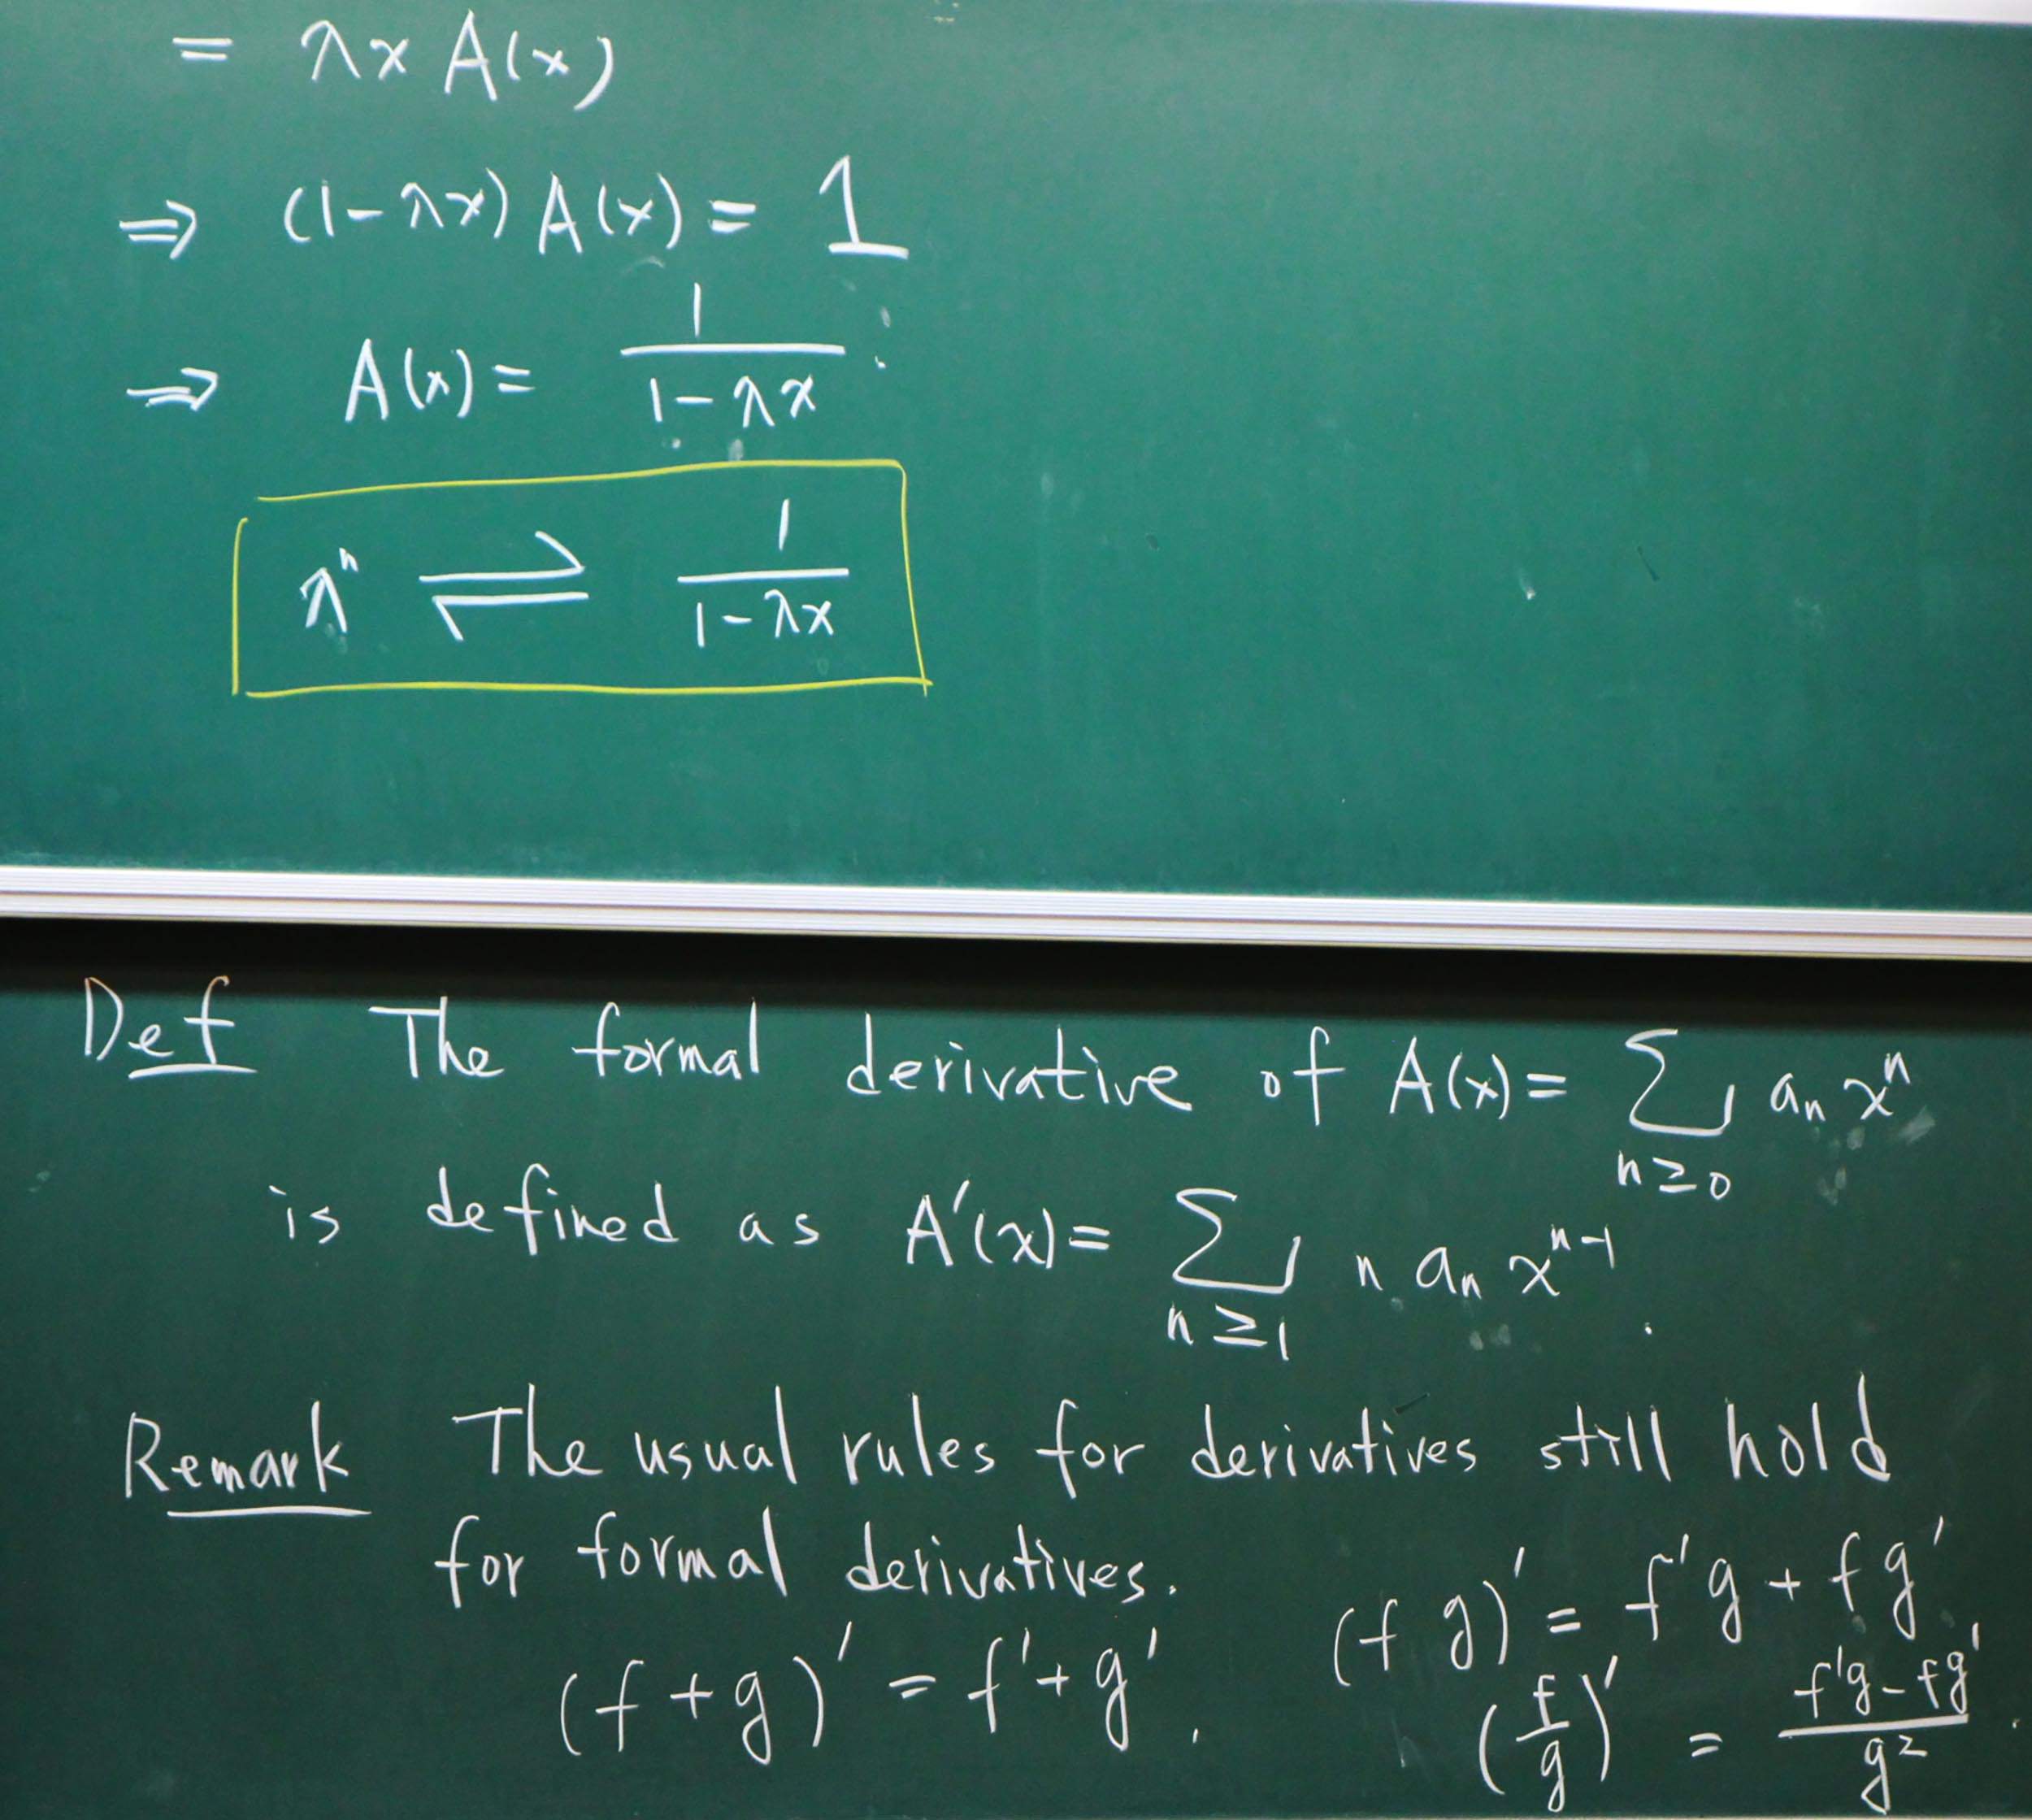 = λx A(x)
⇒ (1-λx) A(x) = 1
⇒ A(x) = 1/(1-λx).
λⁿ ⇌ 1/(1-λx)
Def The formal derivative of A(x) = ∑_{n≥0} aₙ xⁿ
is defined as A'(x) = ∑_{n≥1} n aₙ xⁿ⁻¹.
Remark The usual rules for derivatives still hold
for formal derivatives.
(f+g)' = f'+g'.
(f g)' = f'g + fg'.
(f/g)' = (f'g - fg')/g².